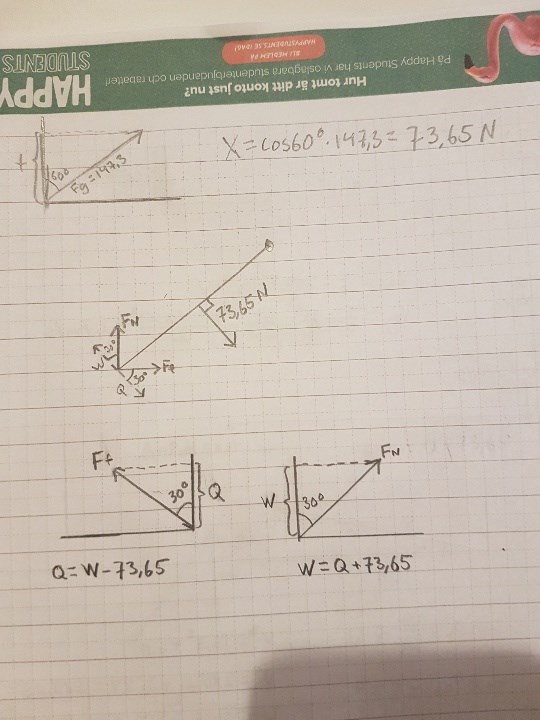 Hur tomt är ditt konto just nu?
På Happy Students har vi oslagbara studenterbjudanden och rabatter!
BLI MEDLEM PÅ
HAPPYSTUDENTS.SE IDAG!
HAPPY
STUDENTS
X = cos60° · 147,3 = 73,65 N
60°
Fg = 147,3
73,65 N
FN
30°
W
30°
Q
Ft
30°
Q
FN
W
30°
Q = W - 73,65
W = Q + 73,65